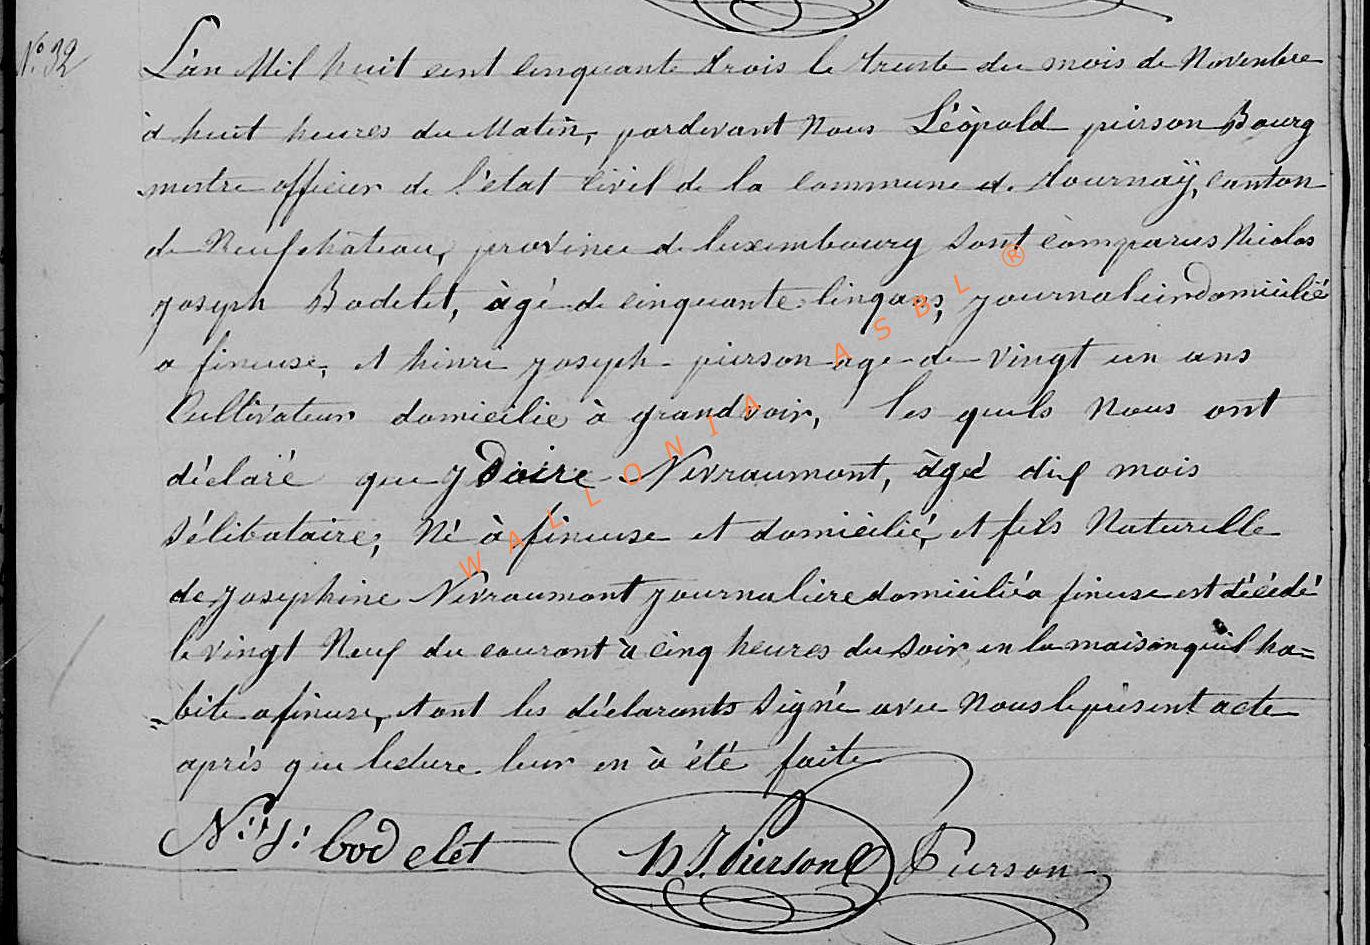 N° 32
L'an Mil huit cent cinquante trois le trente du mois de Novembre
à huit heures du Matin, pardevant Nous Léopold pierson Bourg
mestre officier de l'état Civil de la Commune de tournaÿ, Canton
de Neufchateau, province de luxembourg Sont comparus Nicolas
joseph Bodelet, àgé de cinquante cinq ans, journalier domicilié
a fineuse, et henri joseph pierson age de Vingt un ans
Cultivateur domicilié à grandvoir, les quels Nous ont
déclaré que Nevraumont, àgé dix mois
Sélibataire, Né à fineuse et domicilié, et fils Naturelle
de josephine Nevraumont journalière domicilié a fineuse est décédé
le vingt Neuf du courant à cinq heures du Soir en la maison quil ha=
=bite a fineuse, et ont les déclarants Signé avec Nous le présent acte
après que lecture leur en à été faite
N: J: bodelet H J. Pierson L Pierson
WALLONIA ASBL ®